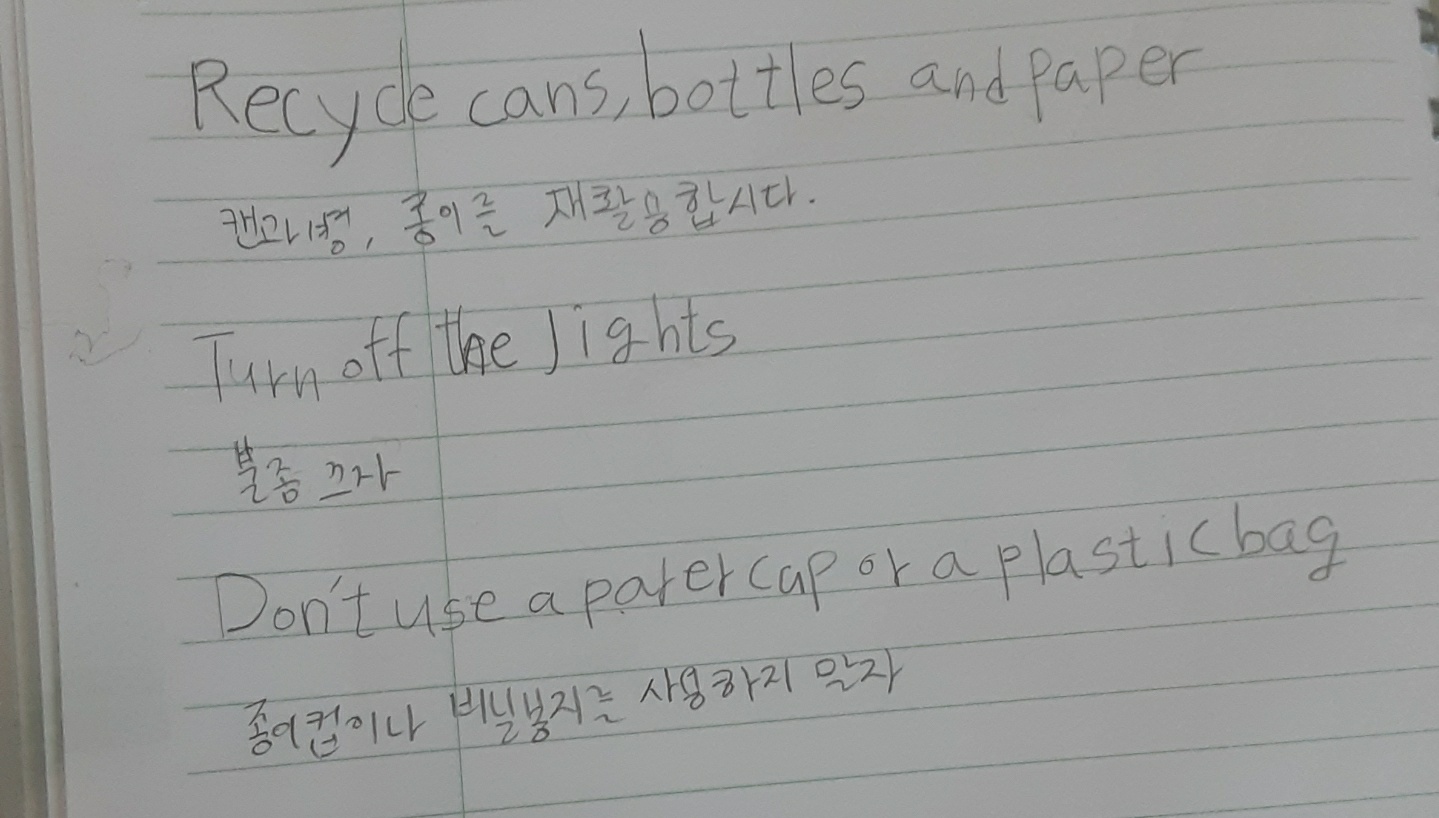 Recycle cans, bottles and paper
캔과 병, 종이를 재활용합시다.
Turn off the lights
불좀 끄자
Don't use a paper cap or a plastic bag
종이컵이나 비닐봉지를 사용하지 말자